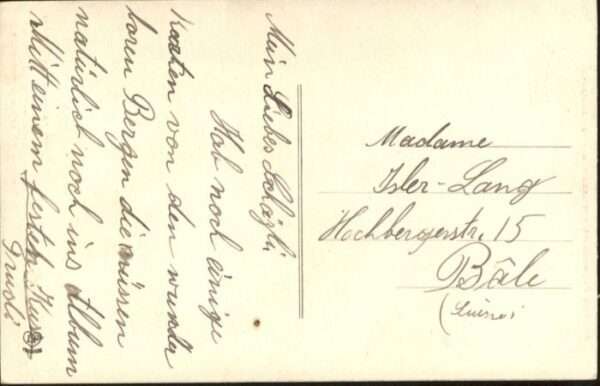 Mein Liebes Schazli,
Hab noch einige
Karten von den wunder
baren Bergen die müssen
natürlich noch ins Album
Mitt einem festen Kuss
Trudi
Madame
Isler-Lang
Hochbergerstr. 15
Bâle
(Suisse)